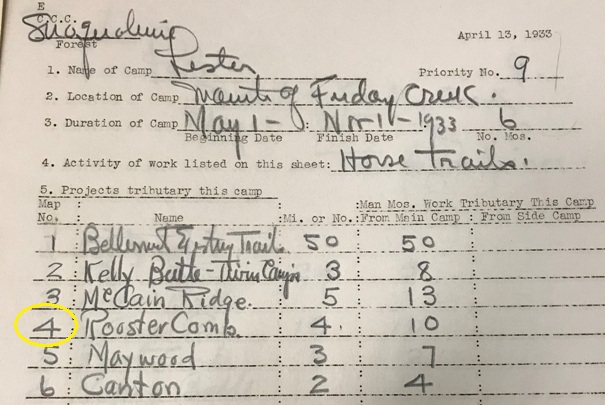 E
C.C.C.
Snoqualmie
Forest
April 13, 1933
1. Name of Camp Lester
Priority No. 9
2. Location of Camp Mouth of Friday Creek.
3. Duration of Camp May 1 - : Nov 1 - 1933 6
Beginning Date Finish Date No. Mos.
4. Activity of work listed on this sheet: Horse Trails.
5. Projects tributary this camp
Map : : :Man Mos. Work Tributary This Camp
No. : Name : Mi. or No.:From Main Camp : From Side Camp
1 : Trails 50 50
2 : Kelly Butte - Twin Camp 3 8
3 : McCain Ridge. 5 13
4 : Rooster Comb. 4. 10
5 : Maywood 3 7
6 : Canton 2 4